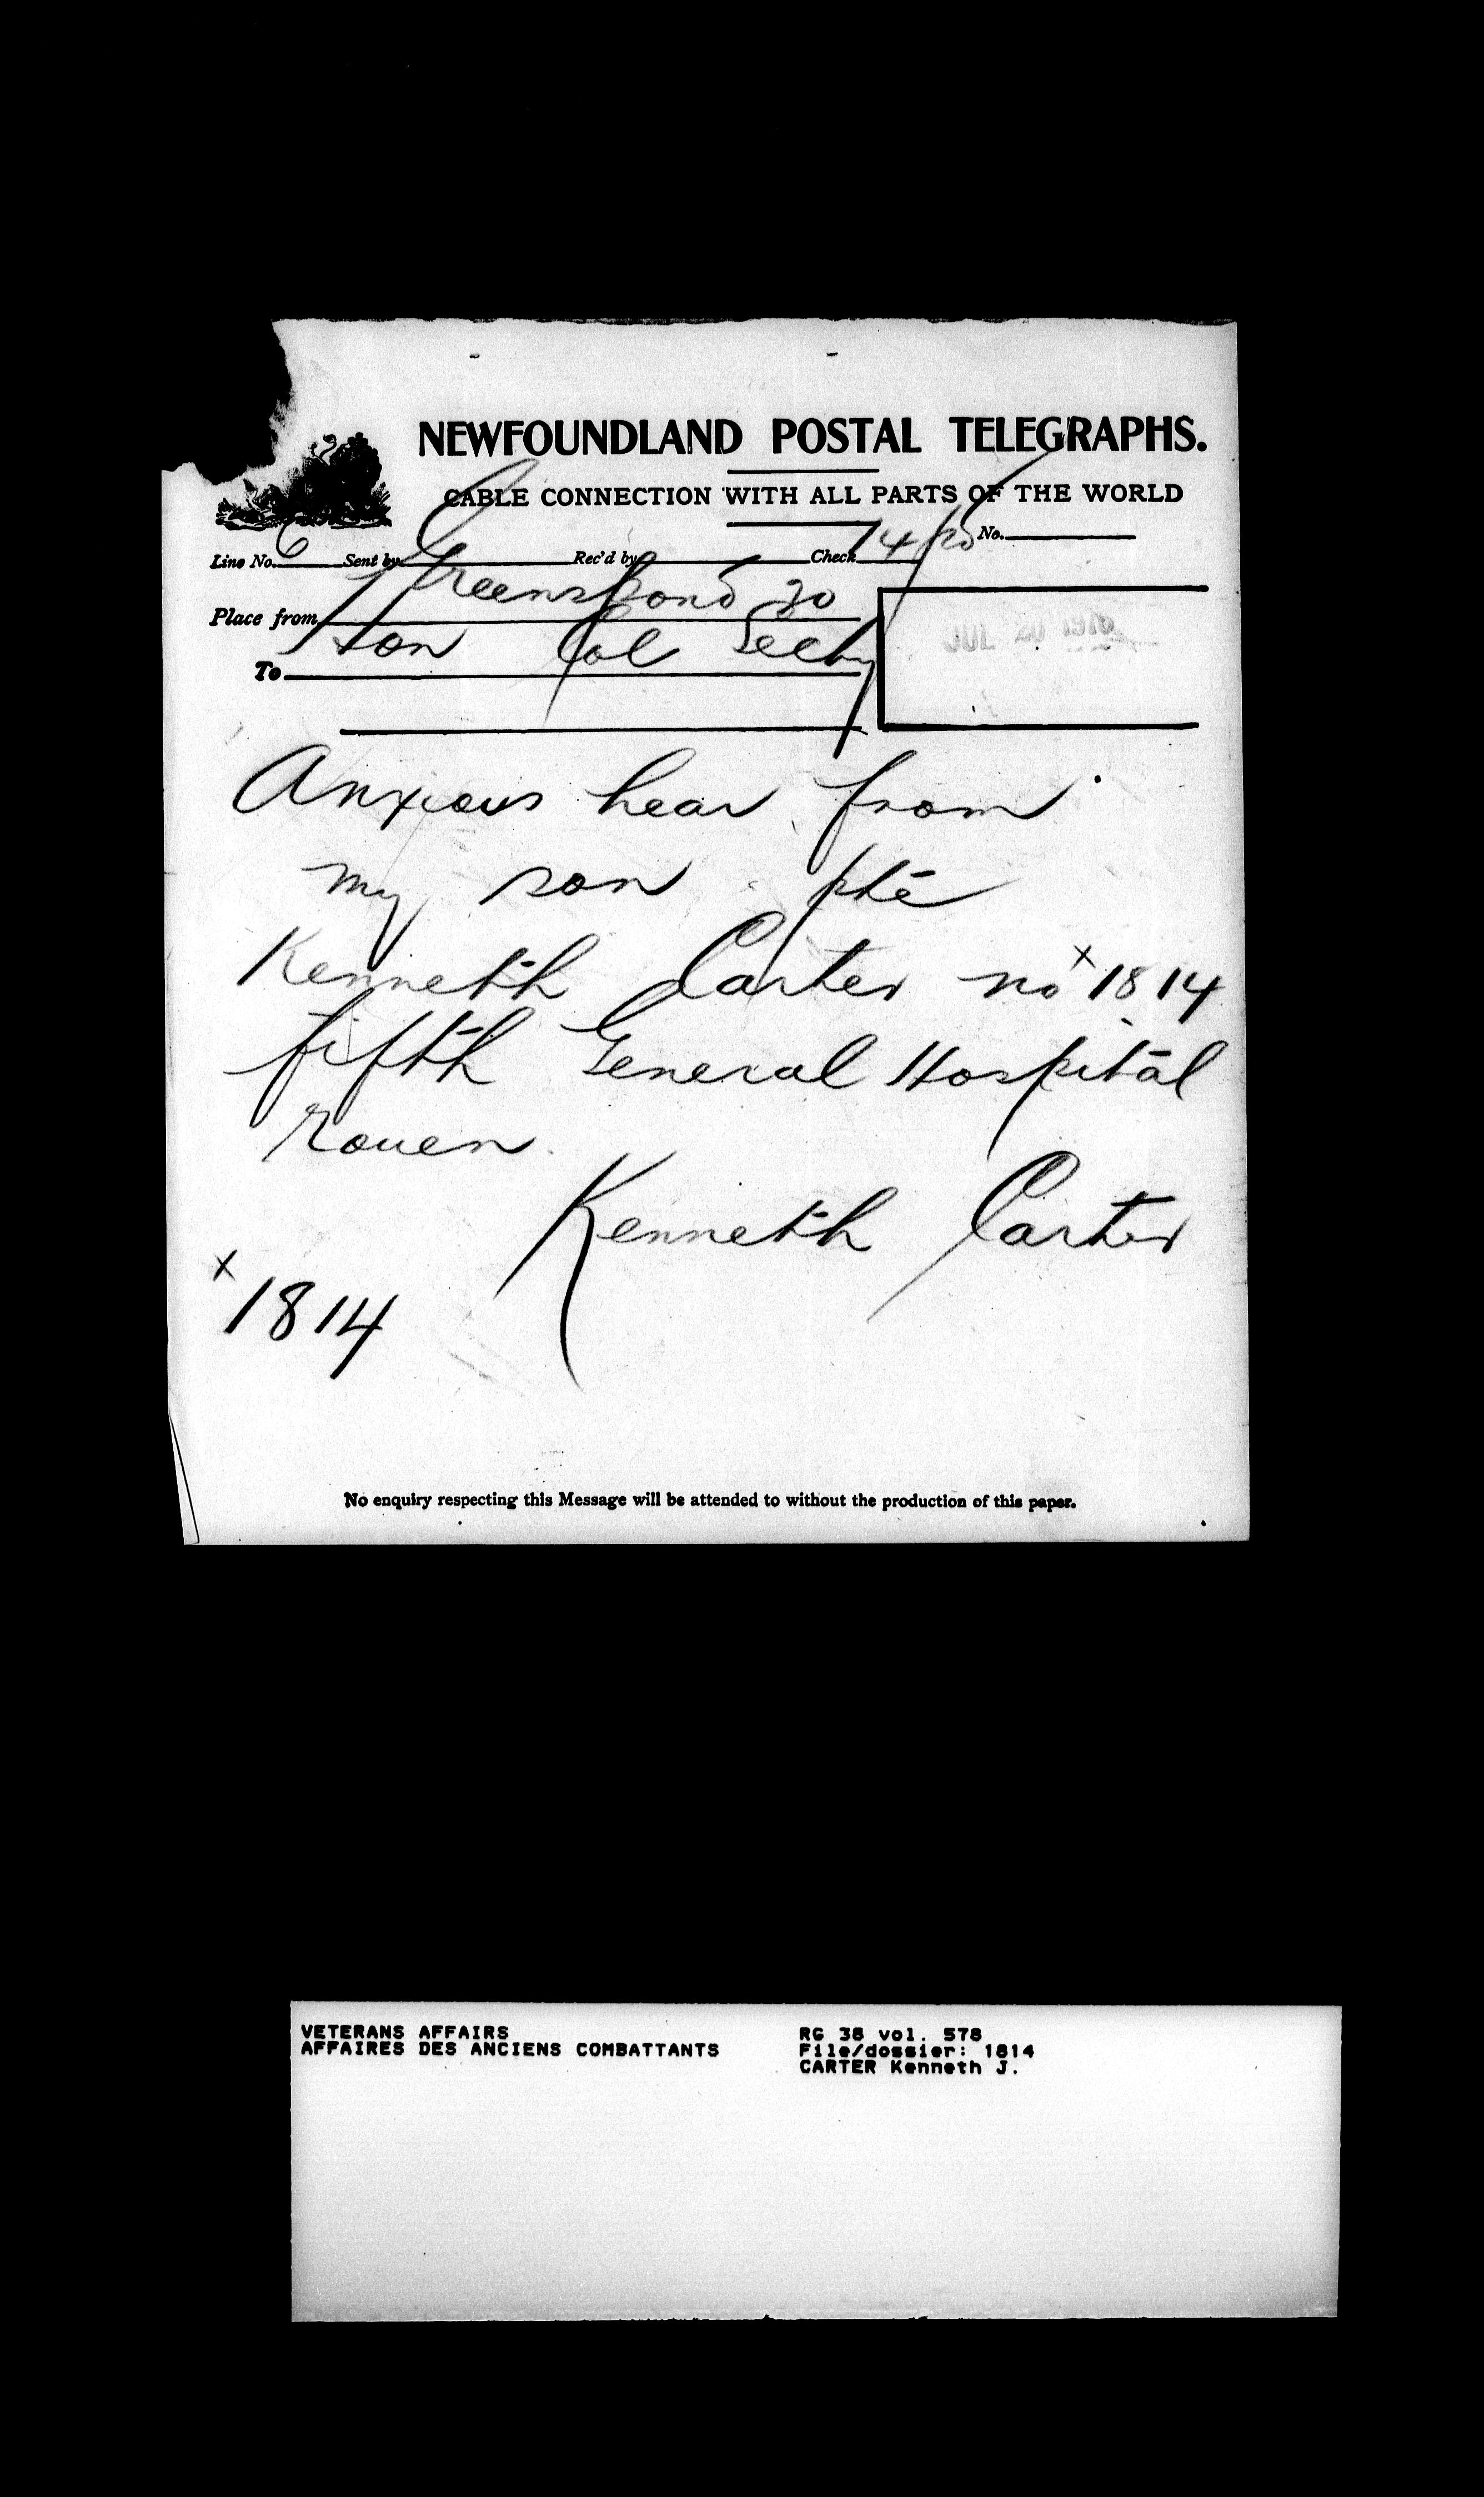 NEWFOUNDLAND POSTAL TELEGRAPHS.
CABLE CONNECTION WITH ALL PARTS OF THE WORLD
Line No. 6 Sent by Rec'd by Check 14 pd No.
Place from Greenspond 20
To Hon Col Secty
JUL 20 1916
Anxious hear from
my son pte
Kenneth Carter no x 1814
fifth General Hospital
rouen
Kenneth Carter
x
1814
No enquiry respecting this Message will be attended to without the production of this paper.
VETERANS AFFAIRS RG 38 vol. 578
AFFAIRES DES ANCIENS COMBATTANTS File/dossier: 1814
CARTER Kenneth J.